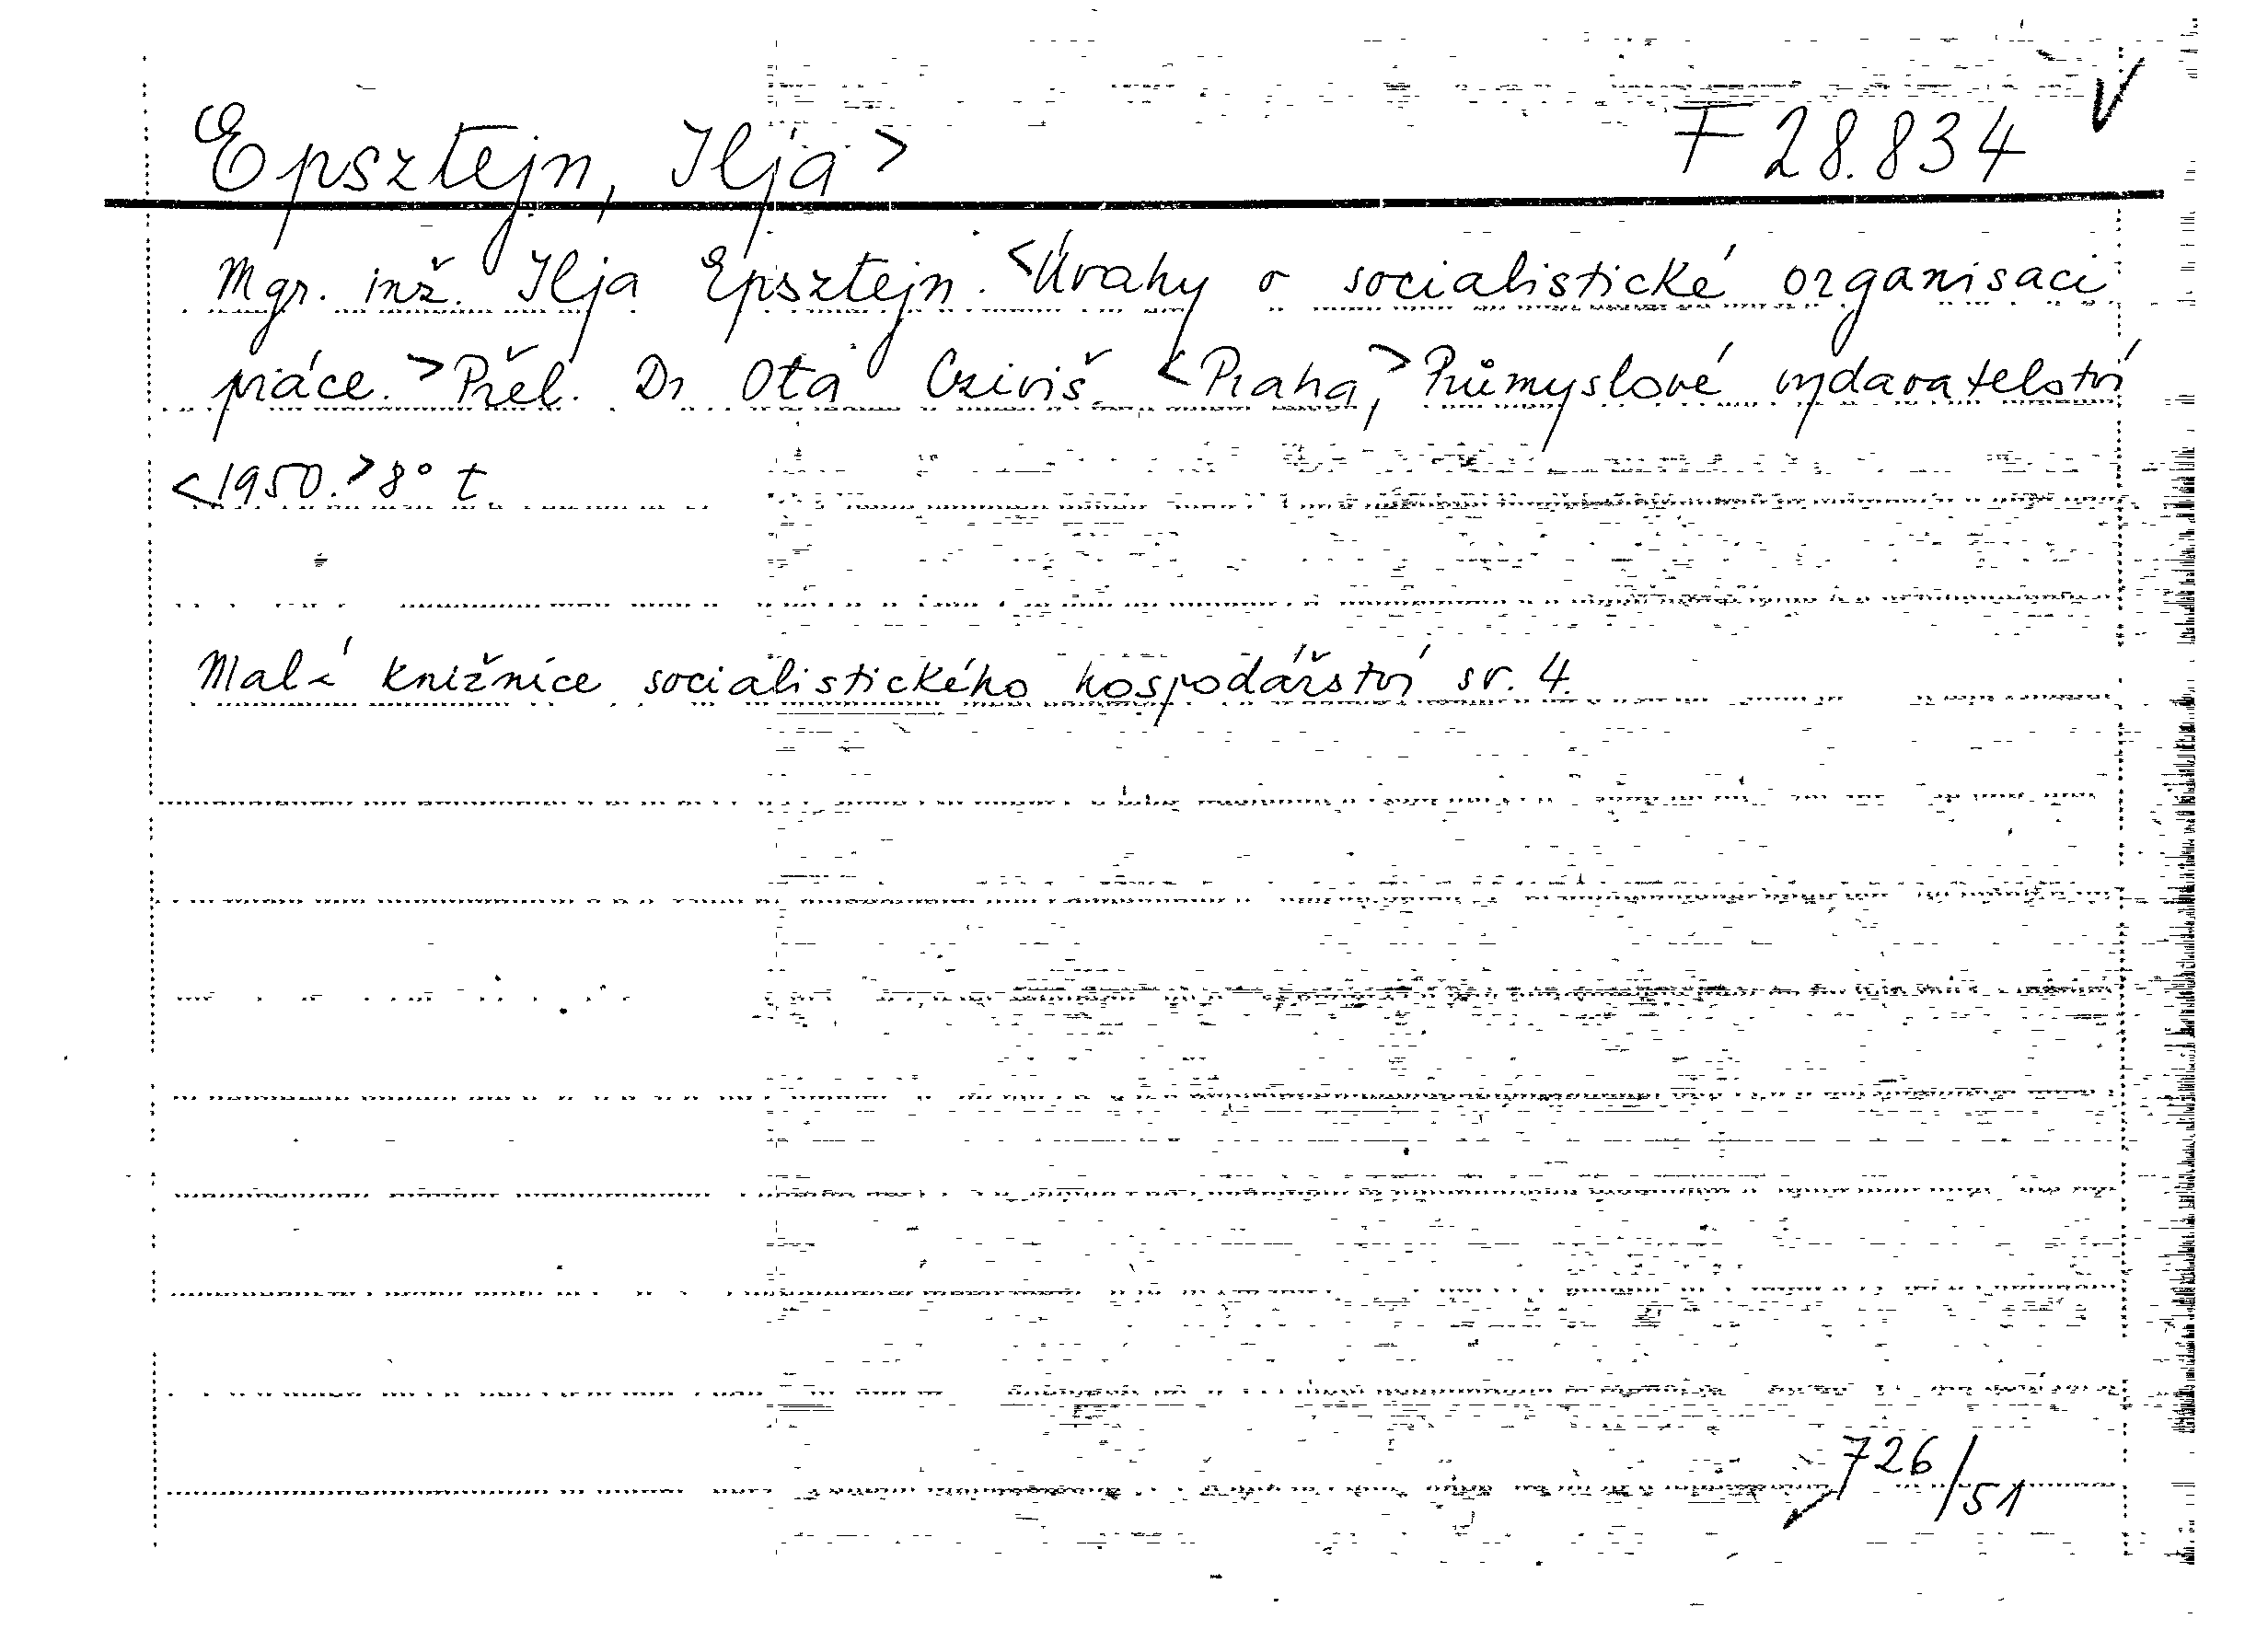 Epsztejn, Ilja> F 28.834 V
Mgr. inž. Ilja Epsztejn. <Úvahy o socialistické organisaci
práce.> Přel. Dr Ota Cziviš. <Praha,> Průmyslové vydavatelství
<1950.> 8° t.
Malá knižnice socialistického hospodářství sv. 4.
726/51